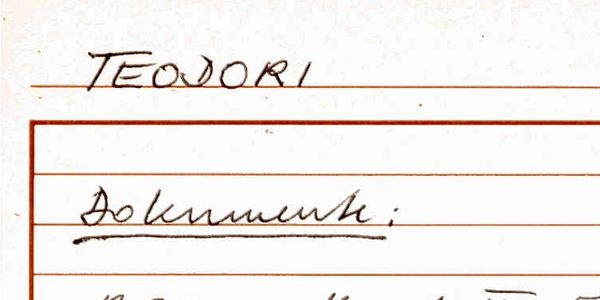 TEODORI
Dokumente: